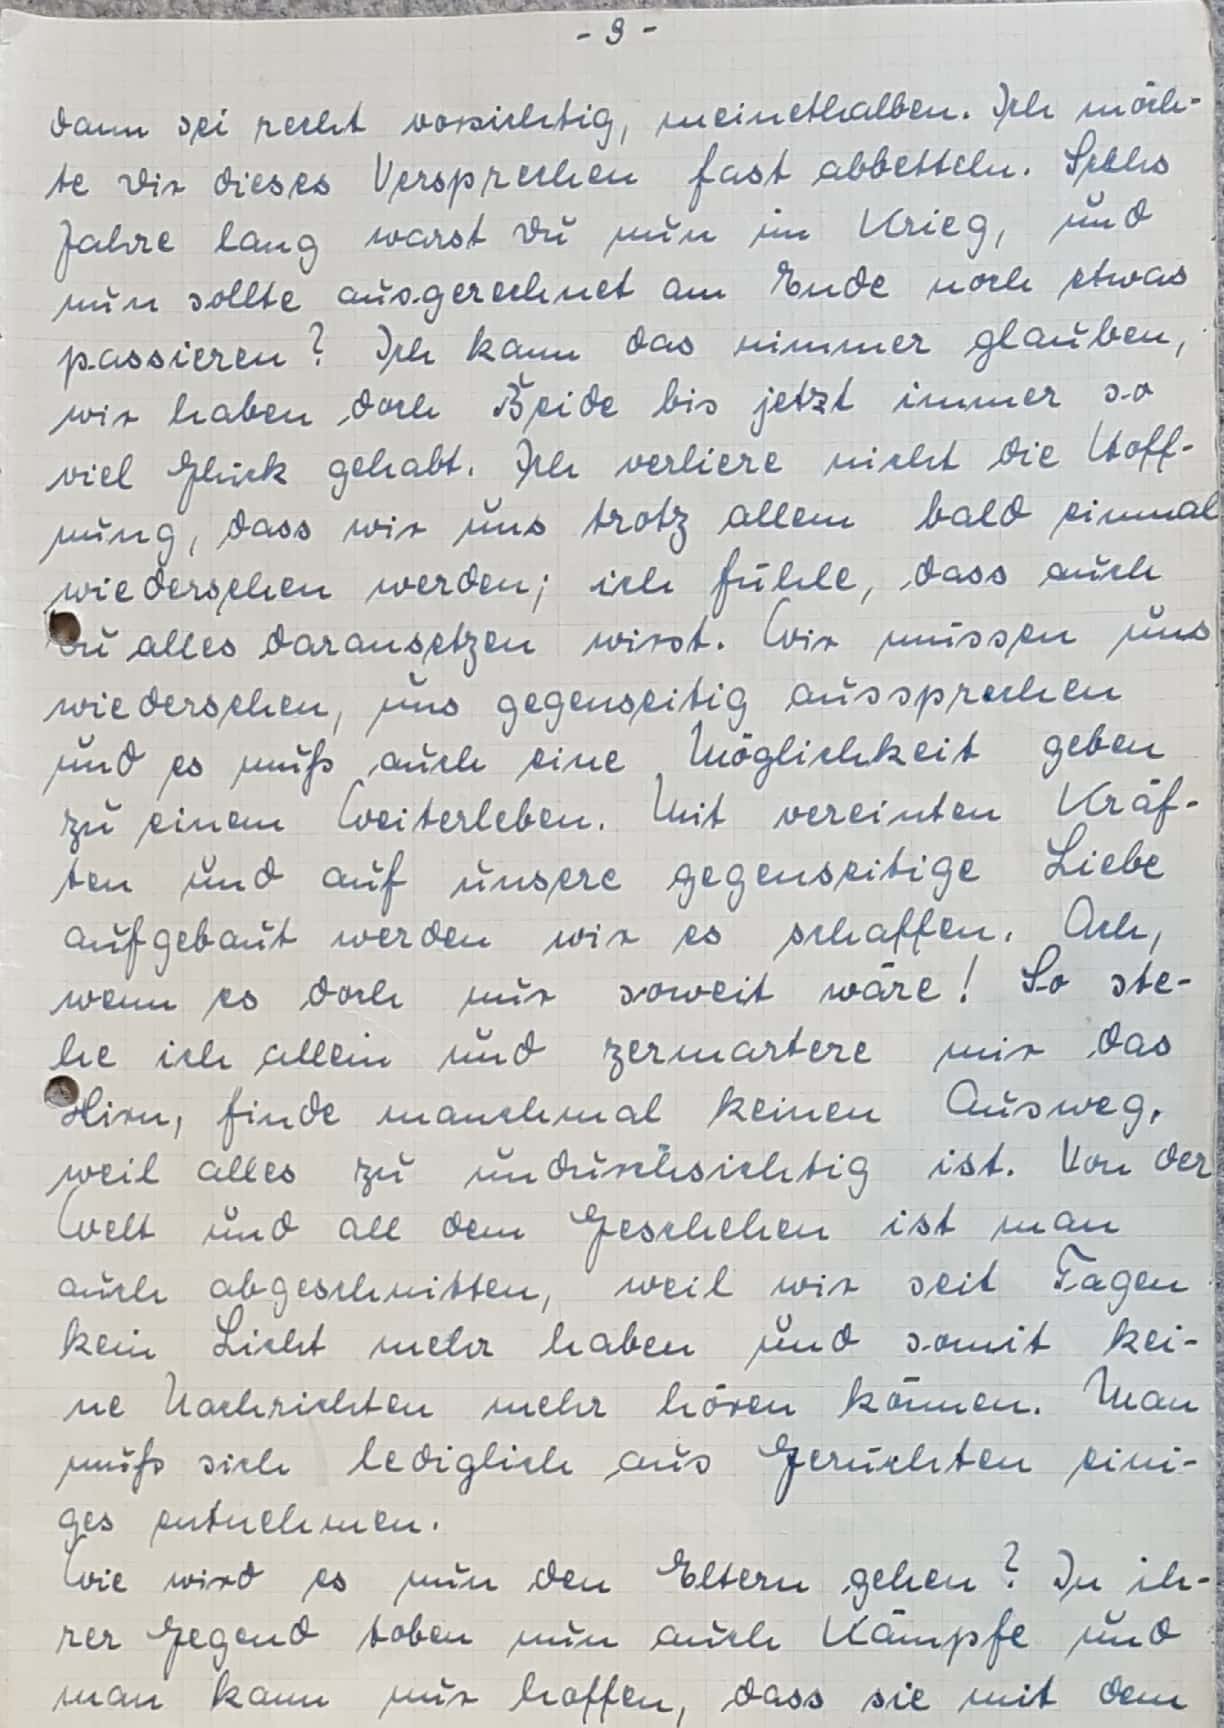 - 3 -
dann sei recht vorsichtig, meinethalben. Ich möch-
te Dir dieses Versprechen fast abbetteln. Sechs
Jahre lang warst Du nun im Krieg, und
nun sollte ausgerechnet am Ende noch etwas
passieren? Ich kann das nimmer glauben,
wir haben doch Beide bis jetzt immer so
viel Glück gehabt. Ich verliere nicht die Hoff-
nung, dass wir uns trotz allem bald einmal
wiedersehen werden; ich fühle, dass auch
Du alles daransetzen wirst. Wir müssen uns
wiedersehen, uns gegenseitig aussprechen
und es muß auch eine Möglichkeit geben
zu einem Weiterleben. Mit vereinten Kräf-
ten und auf unsere gegenseitige Liebe
aufgebaut werden wir es schaffen. Ach,
wenn es doch nur soweit wäre! So ste-
he ich allein und zermartere mir das
Hirn, finde manchmal keinen Ausweg,
weil alles zu undurchsichtig ist. Von der
Welt und all dem Geschehen ist man
auch abgeschnitten, weil wir seit Tagen
kein Licht mehr haben und somit kei-
ne Nachrichten mehr hören können. Man
muß sich lediglich aus Gerüchten eini-
ges entnehmen.
Wie wird es nun den Eltern gehen? In ih-
rer Gegend toben nun auch Kämpfe und
man kann nur hoffen, dass sie mit dem